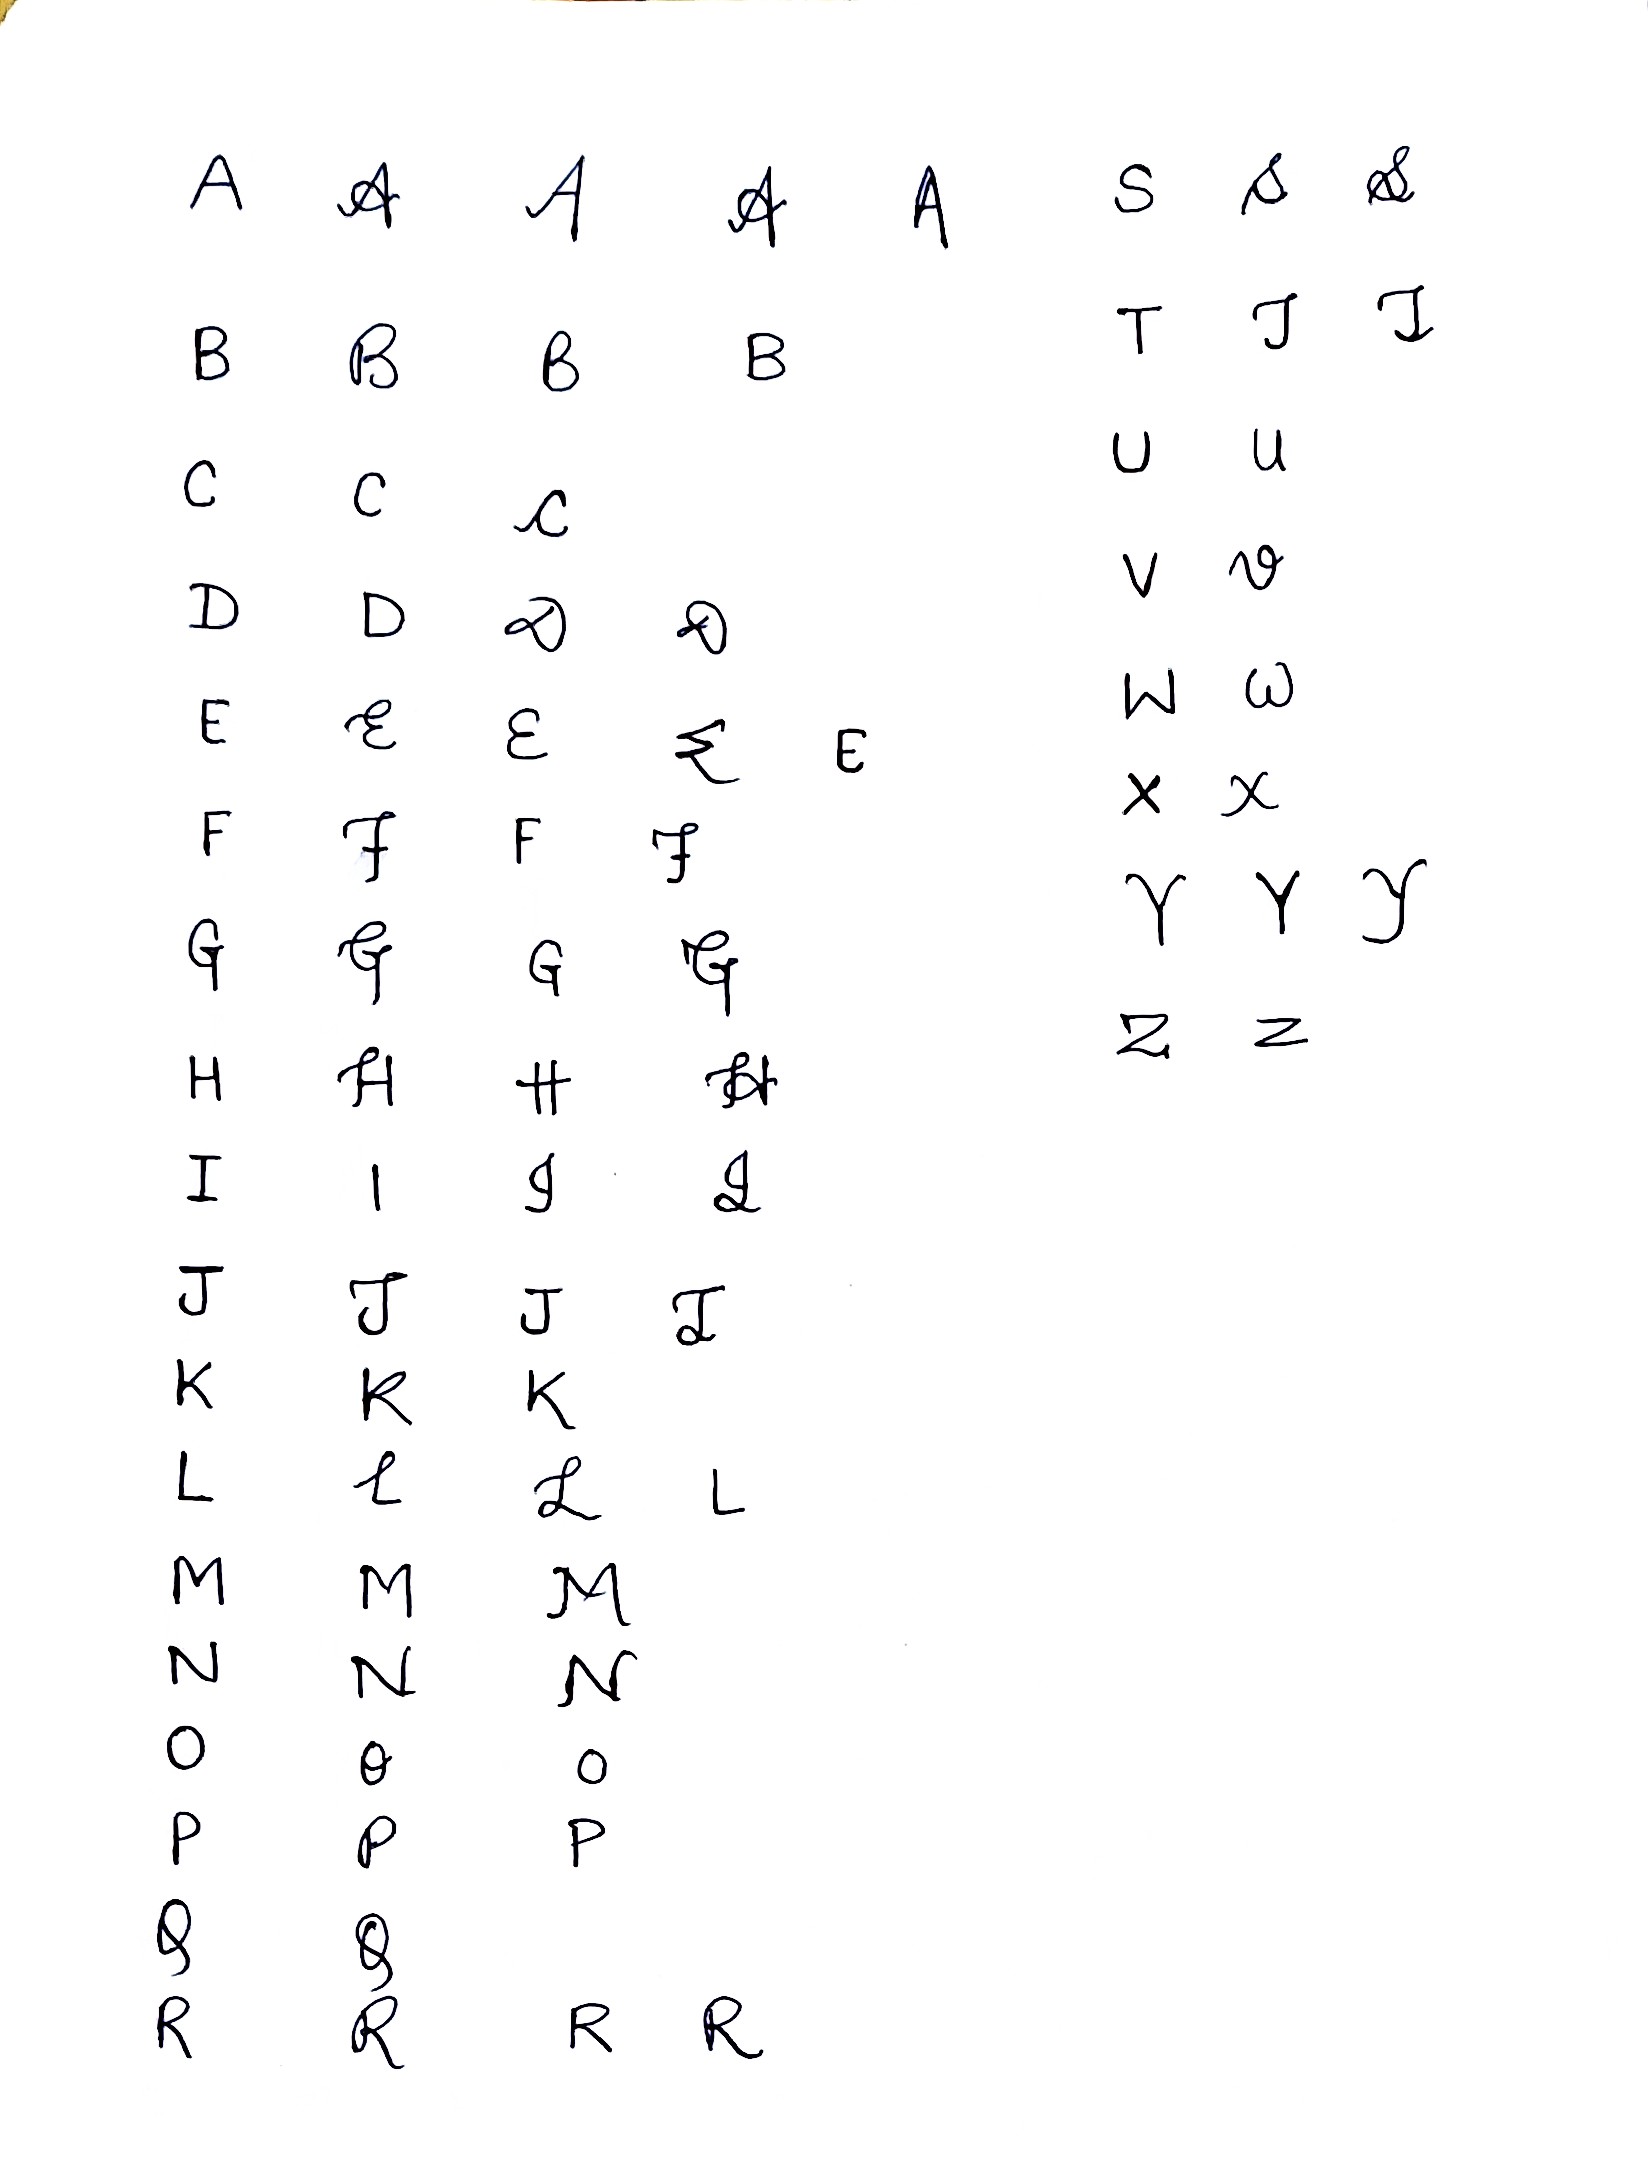 A A A A A
B B B B
C C C
D D D D
E E E E E
F F F F
G G G G
H H H H
I I I I
J J J J
K K K
L L L L
M M M
N N N
O O O
P P P
Q Q
R R R R
S S S
T T T
U U
V V
W W
X X
Y Y Y
Z Z